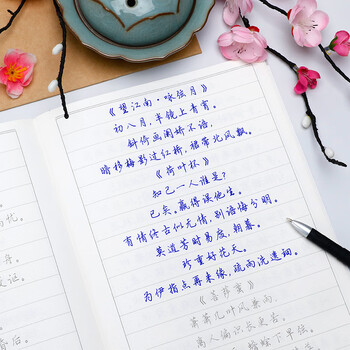 《望江南·咏弦月》
初八月，半镜上青霄。
斜倚画阑娇不语，
暗移梅影过红桥，裙带北风飘。
《荷叶杯》
知己一人谁是？
已矣。赢得误他生。
有情终古似无情，别语悔分明。
莫道芳时易度，朝暮。
珍重好花天。
为伊指点再来缘，疏雨洗遗钿。
《菩萨蛮》
萧萧几叶风兼雨，
离人偏识长更苦。
蟾蜍下早弦。